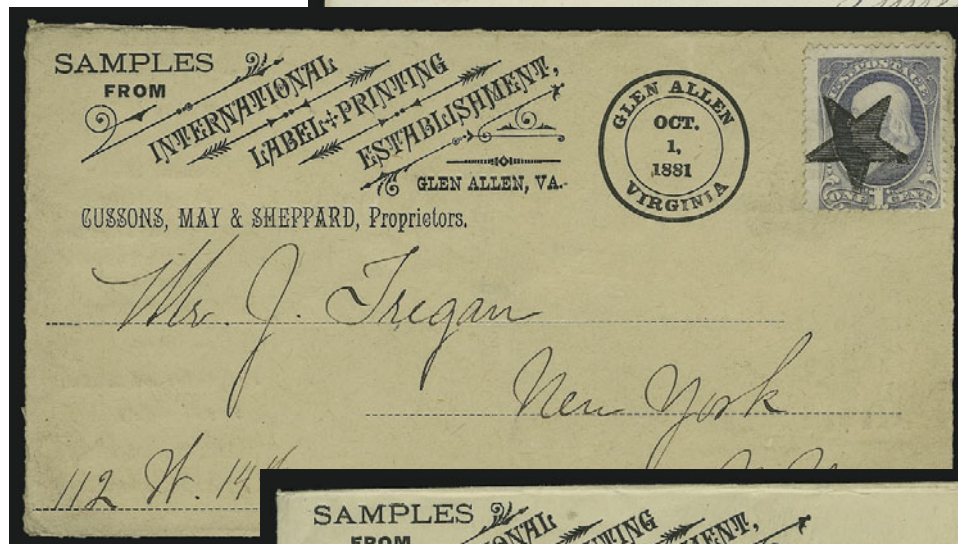 SAMPLES
FROM
INTERNATIONAL
LABEL PRINTING
ESTABLISHMENT,
GLEN ALLEN, VA.
CUSSONS, MAY & SHEPPARD, Proprietors.
GLEN ALLEN
OCT.
1,
1881
VIRGINIA
U.S. POSTAGE
ONE 1 CENT
Mr. J. Tregan
New York
112 W. 14
SAMPLES
FROM